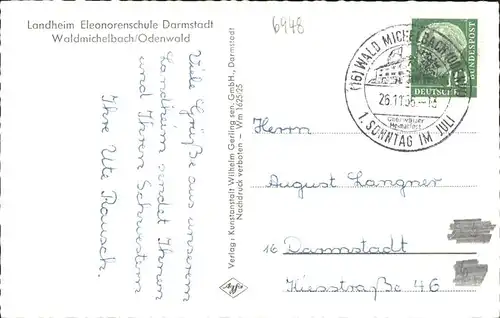 Landheim Eleonorenschule Darmstadt
Waldmichelbach/Odenwald
6948
Viele Grüße aus unserem
Landheim sendet Ihnen
und Ihren Schwestern
Ihre Ute Rausch.
Verlag: Kunstanstalt Wilhelm Gerling sen. GmbH., Darmstadt
Nachdruck verboten - Wm 1625/25
(16) WALD MICHELBACH
26.11.56
1. SONNTAG IM JULI
10
DEUTSCHE
BUNDESPOST
Herrn
August Langner
16 Darmstadt
Kiesstraße 46